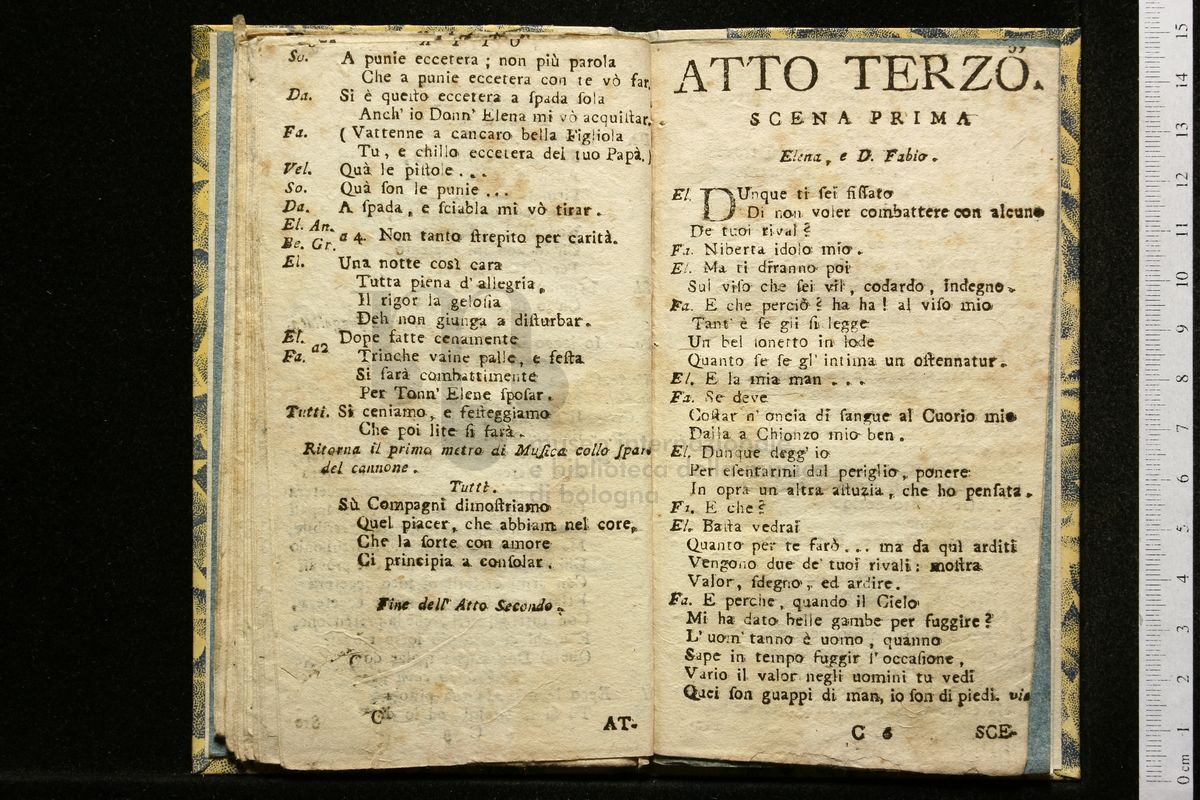 So. A punie eccetera ; non più parola
Che a punie eccetera con te vò far.
Da. Si è queſto eccetera a ſpada ſola
Anch' io Donn' Elena mi vò acquiſtar.
Fa. ( Vattenne a cancaro bella Figliola
Tu, e chillo eccetera del tuo Papà. )
Vel. Quà le piſtole . . .
So. Quà ſon le punie . . .
Da. A ſpada, e ſciabla mi vò tirar.
El. An.
Be. Gr. a 4. Non tanto ſtrepito per carità.
El. Una notte così cara
Tutta piena d' allegria,
Il rigor la geloſia
Deh non giunga a diſturbar.
El. Dope fatte cenamente
Fa. a2 Trinche vaine palle, e feſta
Si farà combattimente
Per Tonn' Elene ſpoſar.
Tutti. Si ceniamo, e feſteggiamo
Che poi lite ſi farà.
Ritorna il primo metro di Muſica collo ſparo
del cannone.
Tutti.
Sù Compagni dimoſtriamo
Quel piacer, che abbiam nel core,
Che la ſorte con amore
Ci principia a conſolar.
Fine dell' Atto Secondo.
AT-
59
ATTO TERZO.
SCENA PRIMA
Elena, e D. Fabio.
El. DUnque ti ſei fiſſato
Di non voler combattere con alcuno
De tuoi rival ?
Fa. Niberta idolo mio.
El. Ma ti diranno poi
Sul viſo che ſei vil, codardo, indegno.
Fa. E che perciò ? ha ha ! al viſo mio
Tant' è ſe gli ſi legge
Un bel ionetto in lode
Quanto ſe ſe gl' intima un oſtennatur.
El. E la mia man . . .
Fa. Se deve
Coſtar n' oncia di ſangue al Cuorio mio
Dalla a Chionzo mio ben.
El. Dunque degg' io
Per eſentarmi dal periglio, ponere
In opra un altra aſtuzia, che ho penſata.
Fa. E che ?
El. Baſta vedrai
Quanto per te farò . . . ma da quì arditi
Vengono due de' tuoi rivali : moſtra
Valor, ſdegno, ed ardire.
Fa. E perche, quando il Cielo
Mi ha dato belle gambe per fuggire ?
L' uom' tanno è uomo, quanno
Sape in tempo fuggir l' occaſione,
Vario il valor negli uomini tu vedi
Quei ſon guappi di man, io ſon di piedi. via
C 6 SCE-
museo internazionale
e biblioteca della
di bologna
15
14
13
12
11
10
9
8
7
6
5
4
3
2
1
0 cm